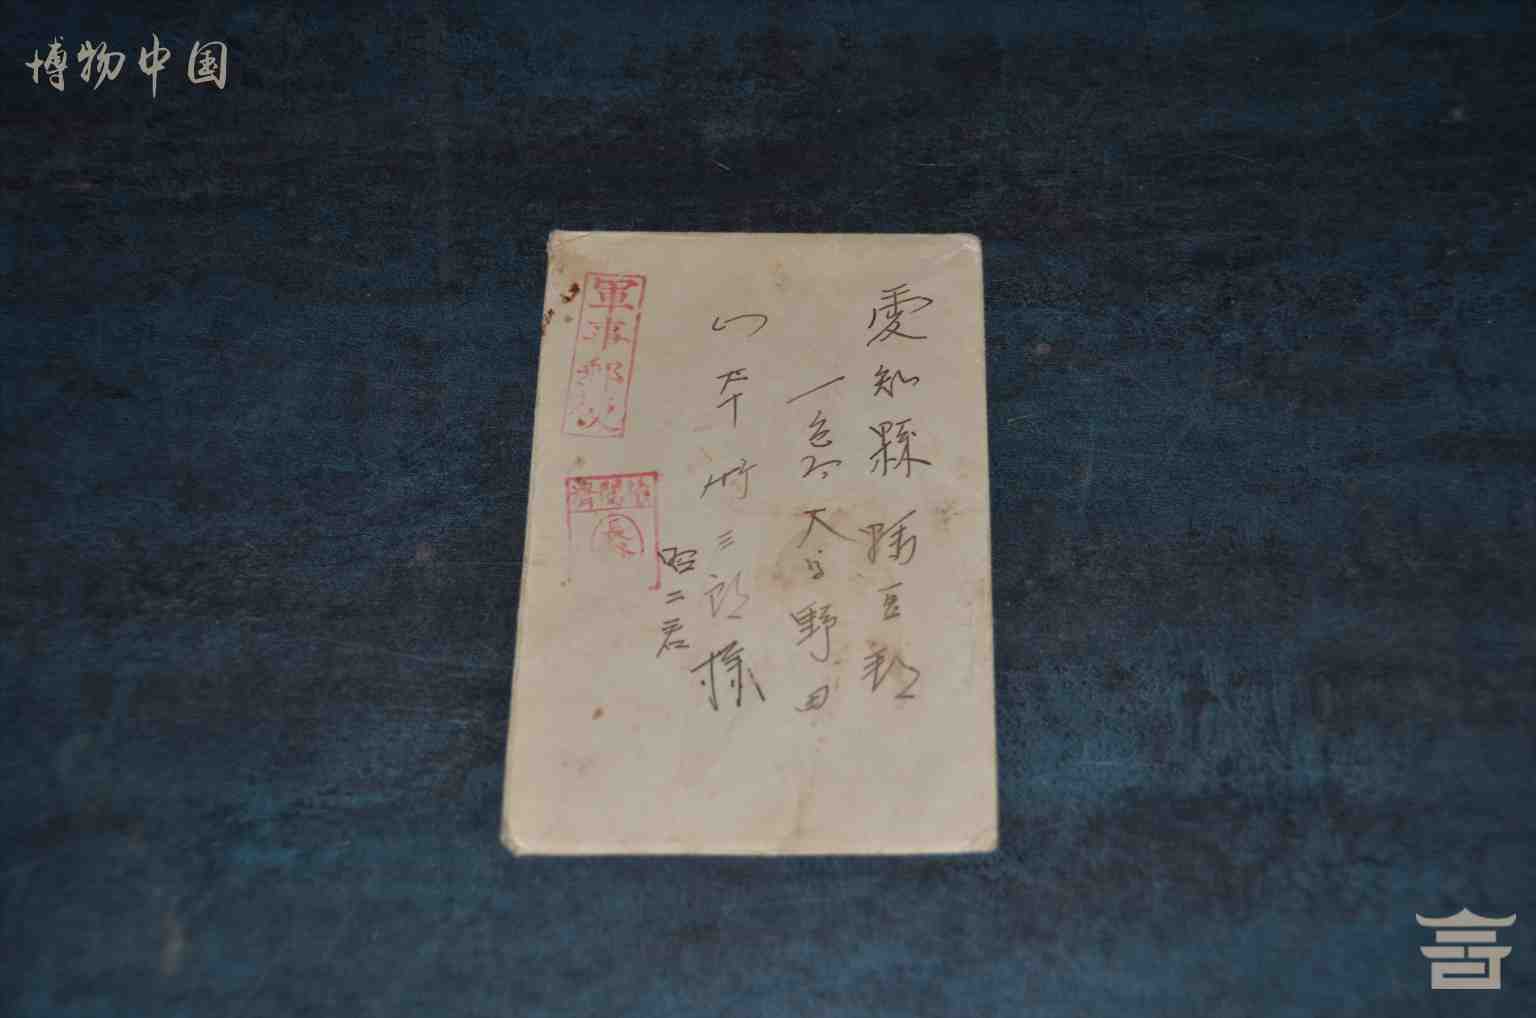 博物中国
愛知縣幡豆郡
一色町大字野田
山本  三郎様
昭二君
軍事郵便
検閲済
長